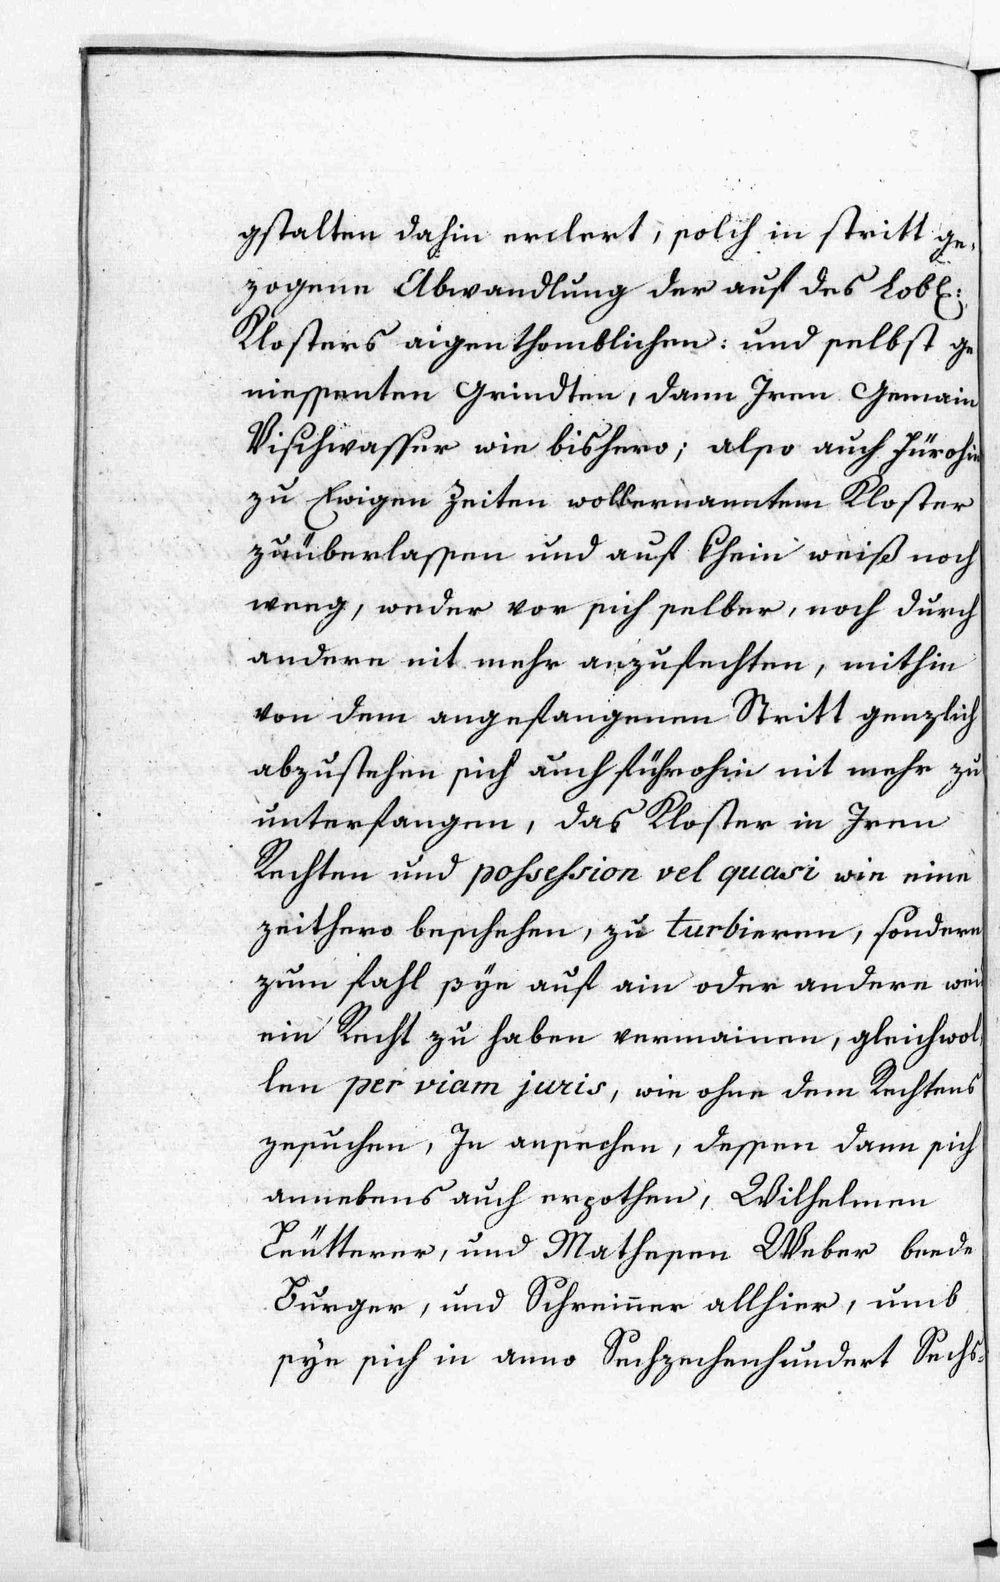 gstalten dahin erclert, solch in stritt ge-
zogene Abwandlung der auf des Lobl:
Klosters aigenthomblichen: und selbst ge
niessenten Grindten, dann Iren Gemain
Vischwasser wie bishero; also auch fürohin
zu Ewigen Zeiten wolbernanntem Kloster
zuüberlassen und auf Khein weiß noch
weeg, weder vor sich selber, noch durch
andere nit mehr anzufechten, mithin
von dem angefangenen Stritt genzlich
abzustehen sich auch führohin nit mehr zu
unterfangen, das Kloster in Iren
Rechten und possession vel quasi wie eine
zeithero beschehen, zu turbieren, sondern
zum fahl sye auf ain oder andere weis
ein Recht zu haben vermainen, gleichwol-
len per viam juris, wie ohne dem Rechtens
zesuchen, In ansechen, dessen dann sich
annebens auch erpothen, Wilhelmen
Leütterer, und Mathesen Weber beede
Burger, und Schreinner allhier, umb
sye sich in anno Sechzechenhundert Sechs-